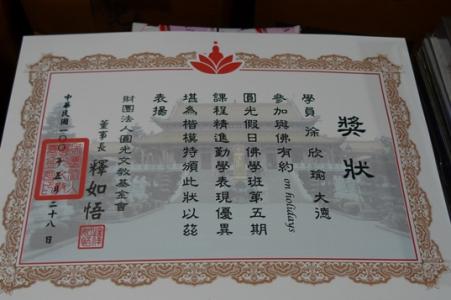 獎狀
學員 徐欣瑜 大德
參加與佛有約 on holidays
圓光假日佛學班第五期
課程精進勤學表現優異
堪為楷模特頒此狀以茲
表揚
財團法人圓光文教基金會
董事長 釋如悟
中華民國一〇〇年五月二十八日